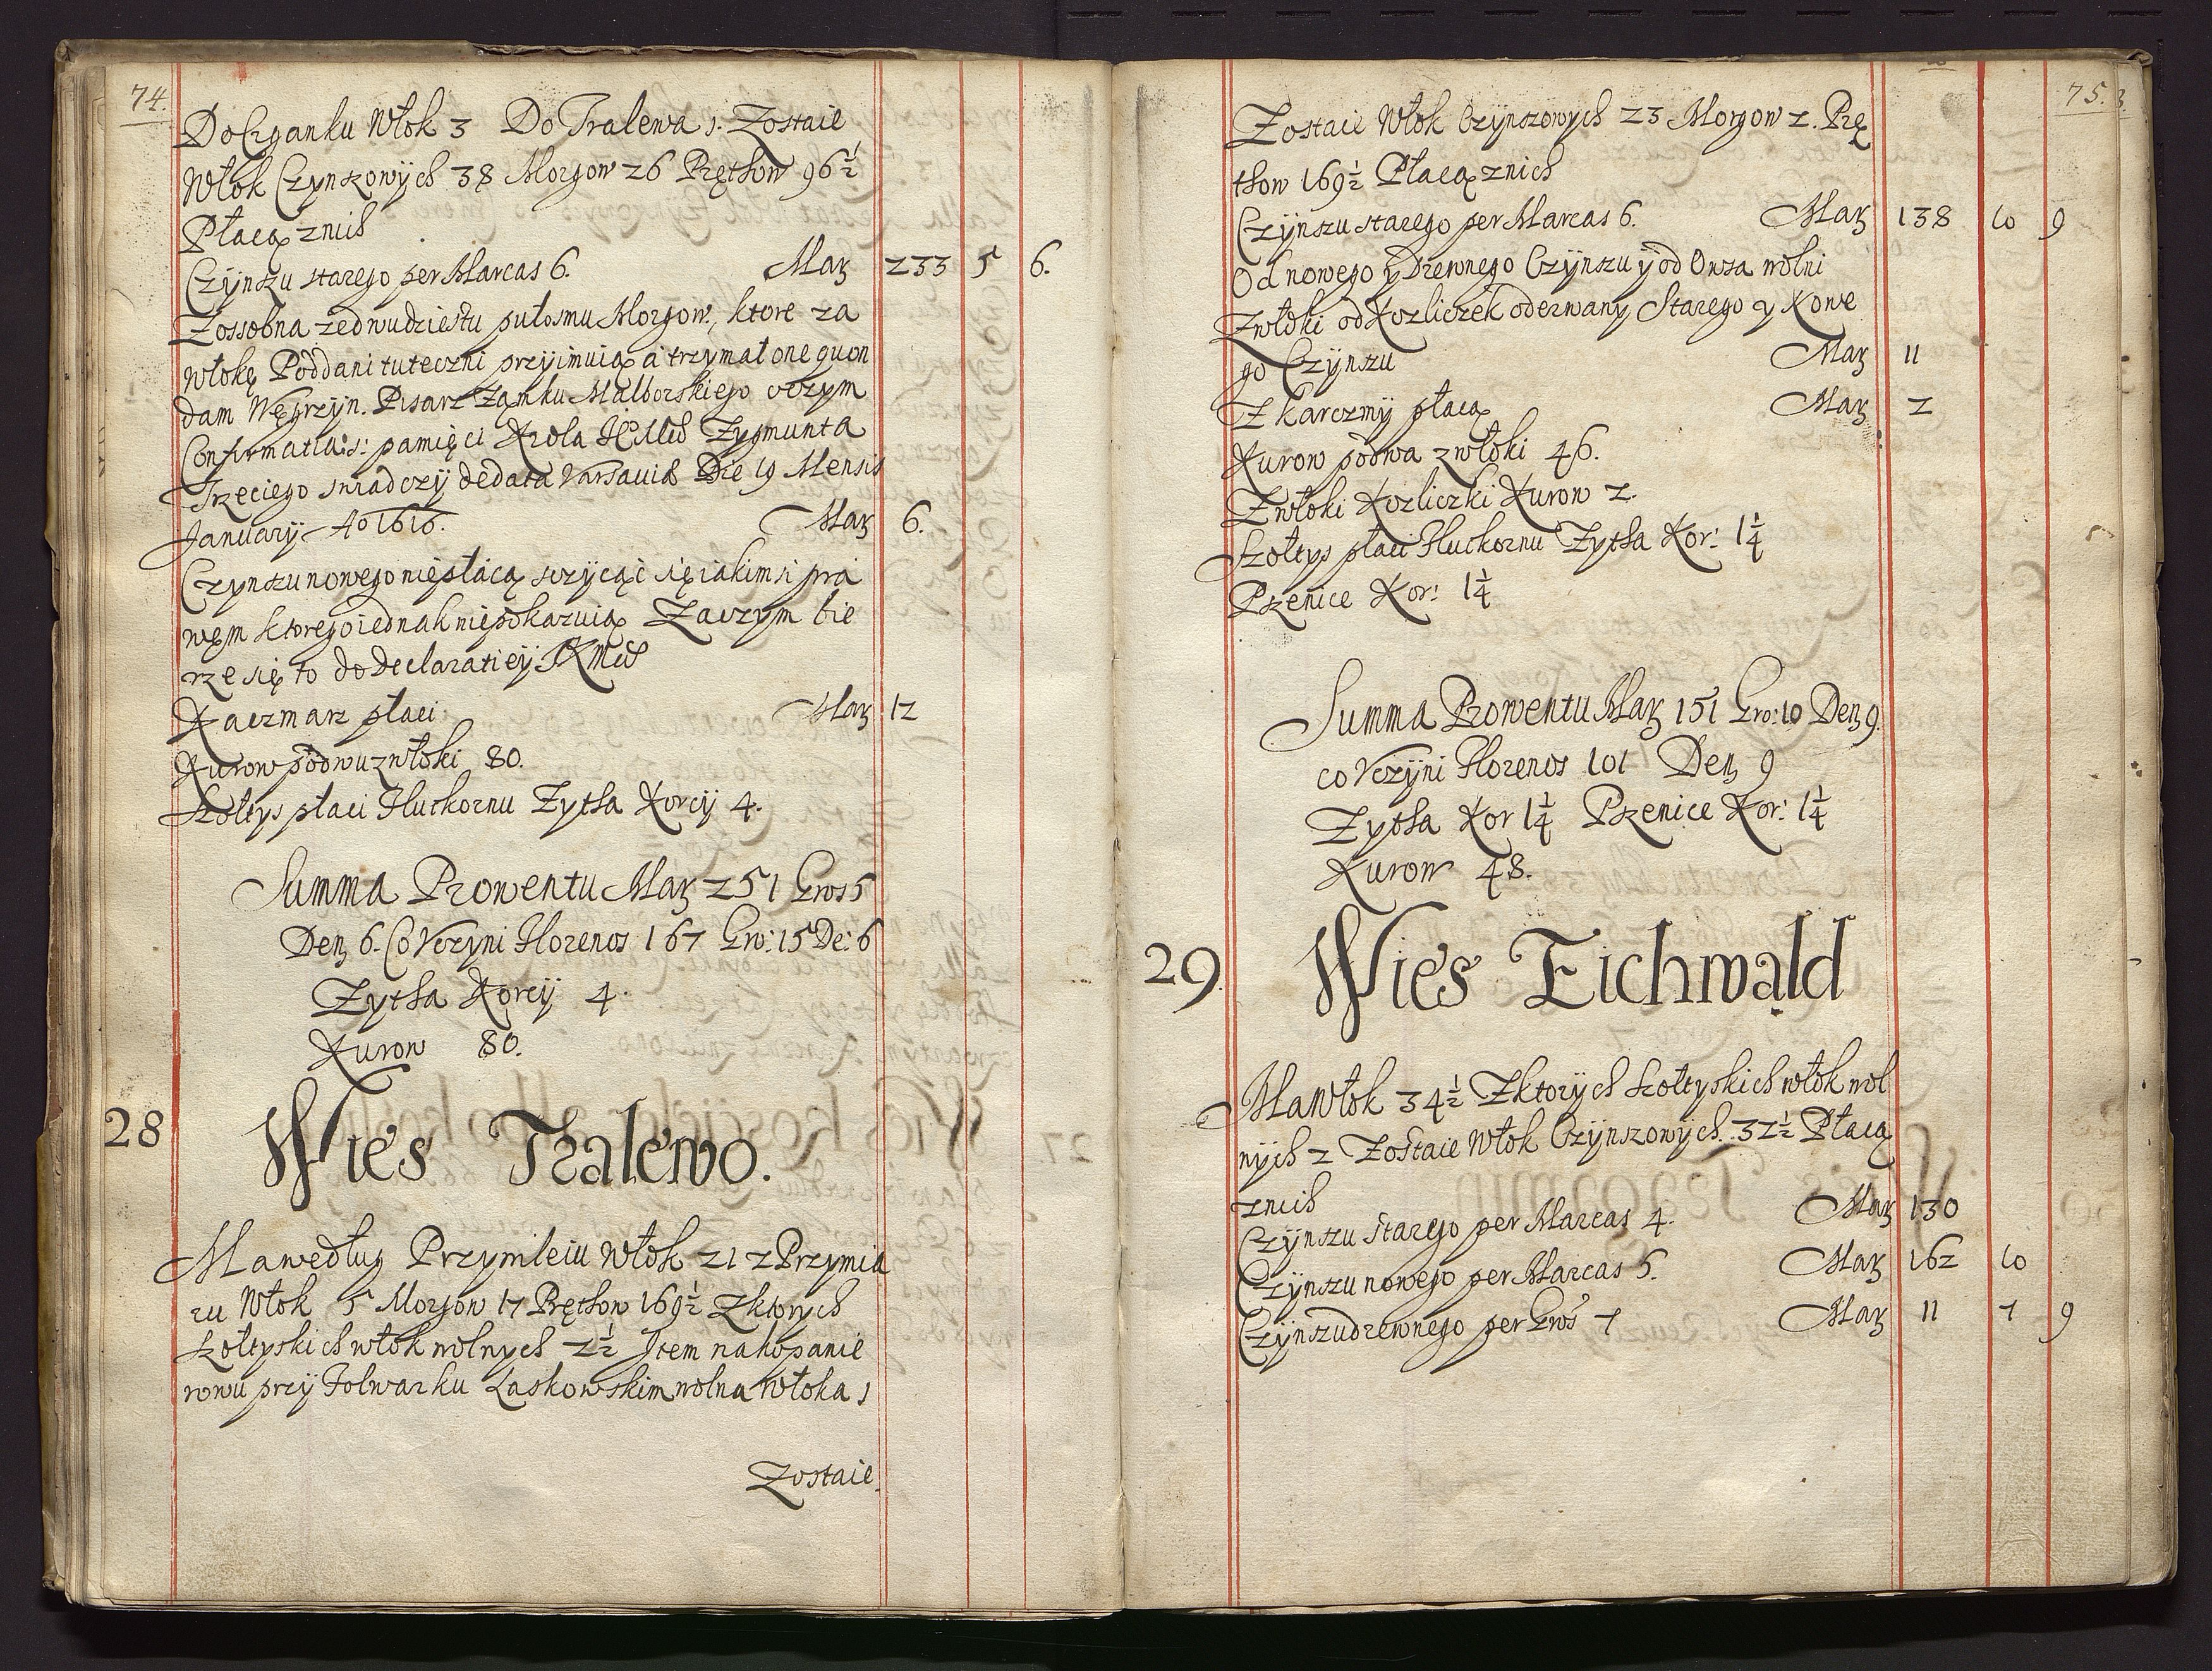 74.
Do Czganku Włok 3 Do Tralewa 1. Zostaie
Włok Czynszowÿch 38 Morgow 26 Pręthow 96½
Płacą znich
Czÿnszu starego per Marcas 6. Mar 233 5 6.
Zossobna zedwudziestu pułosmu Morgow, ktore za
Włokę Poddani tuteczni przyimuią a trzymał one quon
dam Węgrzÿn. Pisarz Zamku Malborskiego oczym
Confirmatia s: pamięci Krola JeoMci Zygmunta
Trzeciego swiadczÿ dedata Varsaviæ Die 19 Mensis
Januarÿ Ao 1616. Mar 6.
Czynszu nowego niepłacą sczÿcąc się iakimsi pra
wem ktorego iednak niepokazuią Zaczym bie
rze się to do Declaratieÿ JKMci
Kaczmarz płaci Mar 12
Kurow podwu zwłoki 80.
Szołtys płaci Hutkornu Zytha Korcÿ 4.
Summa Prowentu Mar 251 Gros 5
Den 6. Co Vczyni Florenos 167 Gro: 15 De: 6
Zytha Korcÿ 4.
Kurow 80.
28 Wies Tralewo.
Ma według Przymileiu Włok 21 z Przymia
ru Włok 5 Morgow 17 Pręthow 169½ Zktorych
Szołtyskich włok wolnych 2½ Jtem nakopanie
rowu przÿ Folwarku Laskowskim wolna Włoka 1
Zostaie
75.
Zostaie Włok Czÿnszowych 23 Morgow 2. Prę
thow 169½ Płacą znich
Czÿnszu starego per Marcas 6. Mar 138 10 9
Od nowego y Drewnego Czÿnszu ÿ od Owsa wolni
Zwłoki od Kozliczek oderwany Starego y Nowe
go Czÿnszu Mar 11
Z karczmÿ płacą Mar 2
Kurow podwa zwłoki 46.
Zwłoki Kozliczki Kurow 2.
Szołtys płaci Hutkornu Zytha Kor: 1¼
Pszenice Kor: 1¼
Summa Prowentu Mar 151 Gro: 10 Den 9.
co Vczÿni Florenos 101 Den 9
Zytha Kor 1¼ Pszenice Kor: 1¼
Kurow 48.
29. Wies Eichwald
Ma Włok 34½ Zktorÿch Szołtyskich włok wol
nÿch 2 Zostaie Włok Czÿnszowÿch. 32½ Płacą
znich
Czÿnszu starego per Marcas 4. Mar 130
Czÿnszu nowego per Marcas 5. Mar 162 10
Czÿnszu drewnego per Gros 7 Mar 11 7 9